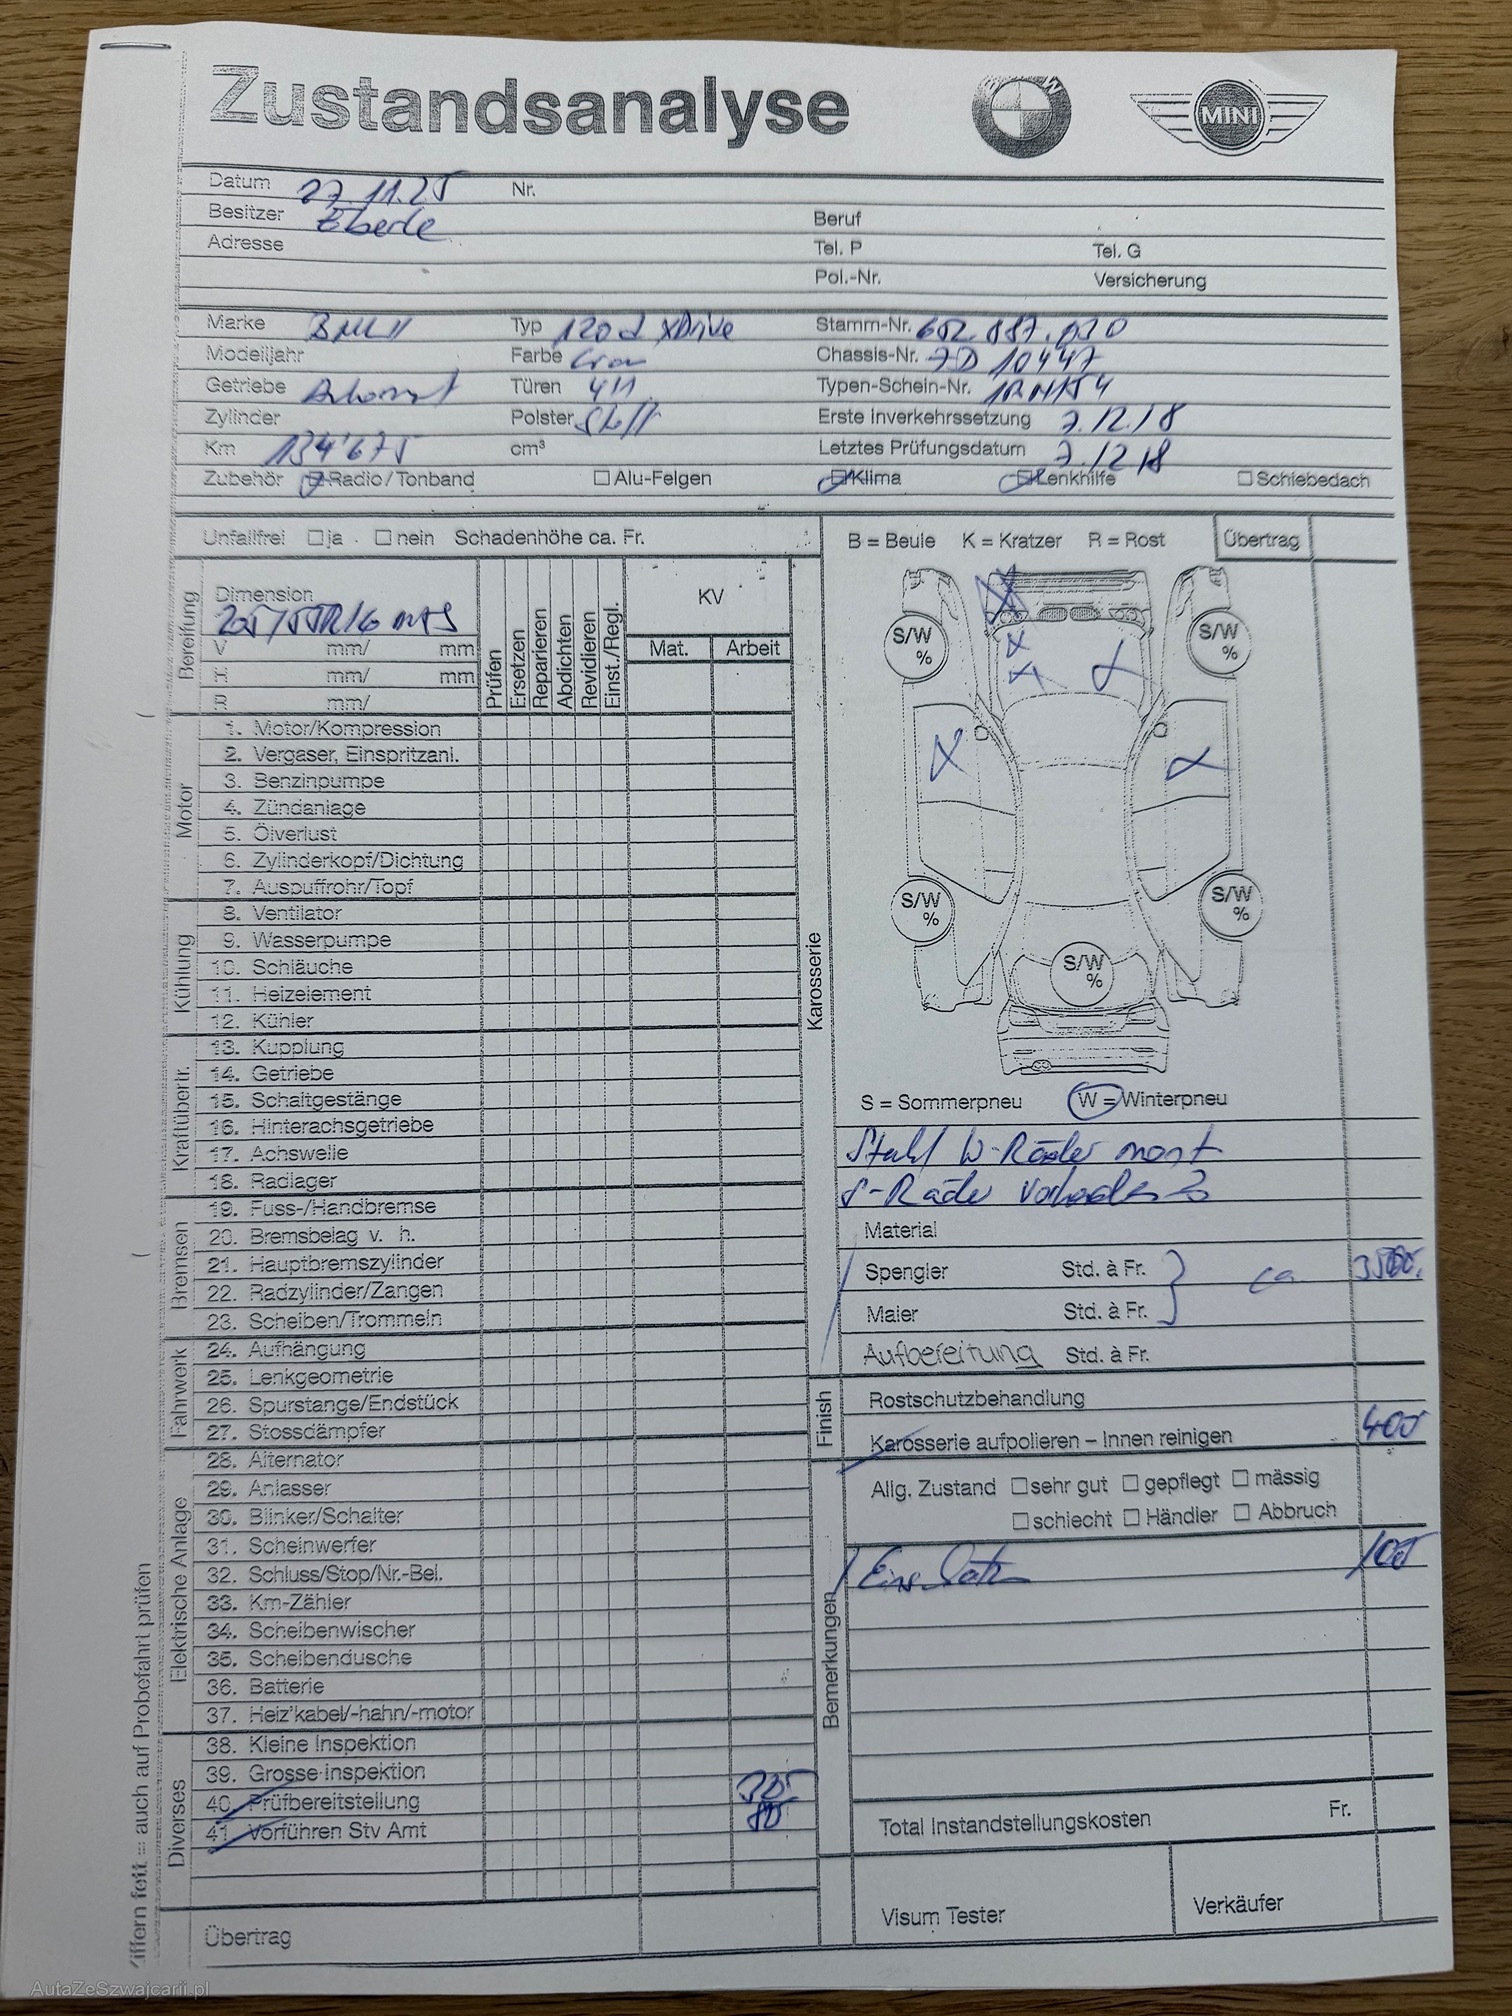 Zustandsanalyse
BMW
MINI
Datum 27.11.25 Nr.
Besitzer Eberle Beruf
Adresse Tel. P Tel. G
Pol.-Nr. Versicherung
Marke BMW Typ 120d xDrive Stamm-Nr.
Modelljahr Farbe Chassis-Nr. 7D 10447
Getriebe Türen Typen-Schein-Nr.
Zylinder Polster Stoff Erste Inverkehrssetzung 7.12.18
Km 134'675 cm³ Letztes Prüfungsdatum 7.12.18
Zubehör Radio/Tonband Alu-Felgen Klima Lenkhilfe Schiebedach
Unfallfrei ja nein Schadenhöhe ca. Fr.
B = Beule K = Kratzer R = Rost Übertrag
Bereifung
Dimension
205/55R16 M+S
V mm/ mm
H mm/ mm
R mm/
Prüfen
Ersetzen
Reparieren
Abdichten
Revidieren
Einst./Regl.
KV
Mat. Arbeit
Motor
1. Motor/Kompression
2. Vergaser, Einspritzanl.
3. Benzinpumpe
4. Zündanlage
5. Ölverlust
6. Zylinderkopf/Dichtung
7. Auspuffrohr/Topf
Kühlung
8. Ventilator
9. Wasserpumpe
10. Schläuche
11. Heizelement
12. Kühler
Kraftübertr.
13. Kupplung
14. Getriebe
15. Schaltgestänge
16. Hinterachsgetriebe
17. Achswelle
18. Radlager
Bremsen
19. Fuss-/Handbremse
20. Bremsbelag v. h.
21. Hauptbremszylinder
22. Radzylinder/Zangen
23. Scheiben/Trommeln
Fahrwerk
24. Aufhängung
25. Lenkgeometrie
26. Spurstange/Endstück
27. Stossdämpfer
Elektrische Anlage
28. Alternator
29. Anlasser
30. Blinker/Schalter
31. Scheinwerfer
32. Schluss/Stop/Nr.-Bel.
33. Km-Zähler
34. Scheibenwischer
35. Scheibendusche
36. Batterie
37. Heiz'kabel/-hahn/-motor
Diverses
38. Kleine Inspektion
39. Grosse inspektion
40. Prüfbereitstellung
41. Vorführen Stv Amt
Übertrag
Ziffern fett = auch auf Probefahrt prüfen
Karosserie
S/W %
S/W %
S/W %
S/W %
S/W %
S = Sommerpneu W = Winterpneu
Stahl W-Räder mont
S-Räder
Material
Spengler Std. à Fr. ca
Maler Std. à Fr.
Aufbereitung Std. à Fr.
Finish
Rostschutzbehandlung
Karosserie aufpolieren – Innen reinigen
Allg. Zustand sehr gut gepflegt mässig
schlecht Händler Abbruch
Bemerkungen
Total Instandstellungskosten Fr.
Visum Tester Verkäufer
AutaZeSzwajcarii.pl